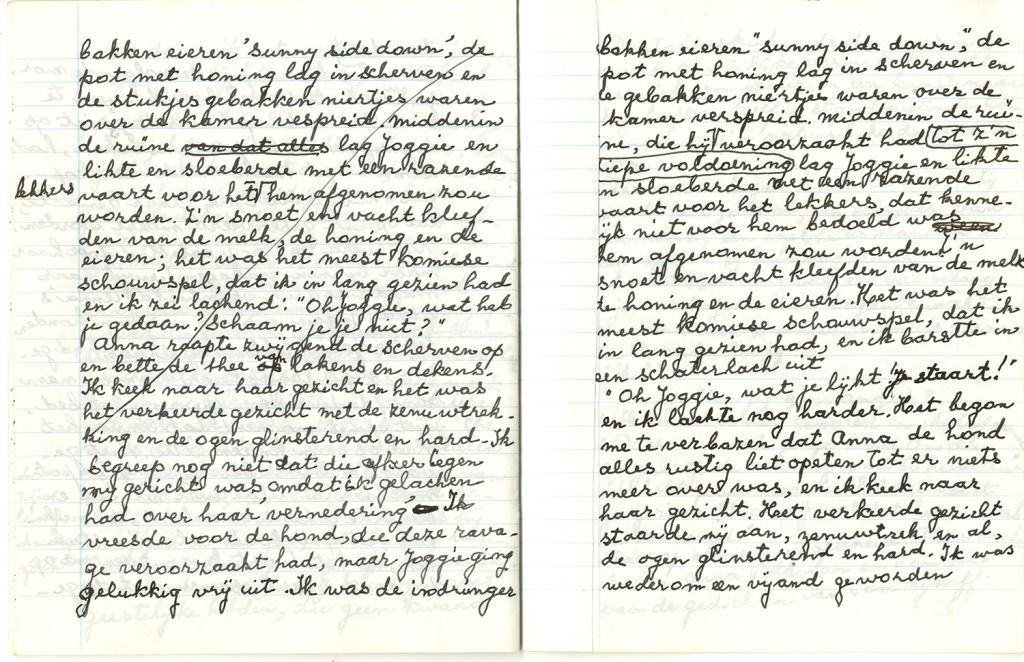 bakken eieren 'sunny side down', de
pot met honing lag in scherven en
de stukjes gebakken niertjes waren
over de kamer verspreid, middenin
de ruïne van dat alles lag Joggie en
likte en sloeberde met een razende
lekkers
vaart voor het hem afgenomen zou
worden. Z'n snoet en vacht kleef-
den van de melk, de honing en de
eieren; het was het meest komiese
schouwspel, dat ik in lang gezien had
en ik zei lachend: "Oh Joggie, wat heb
je gedaan? Schaam je je niet?"
Anna raapte zwijgend de scherven op
en bette de thee van lakens en dekens.
Ik keek naar haar gezicht en het was
het verkeerde gezicht met de zenuwtrek-
king en de ogen glinsterend en hard. Ik
begreep nog niet dat die afkeer tegen
mij gericht was, omdat ik gelachen
had over haar vernedering. Ik
vreesde voor de hond, die deze rava-
ge veroorzaakt had, maar Joggie ging
gelukkig vrij uit. Ik was de indringer
bakken eieren "sunny side down," de
pot met honing lag in scherven en
e gebakken niertjes waren over de
kamer verspreid. middenin de ruï-
ne, die hij veroorzaakt had tot z'n
iepe voldoening lag Joggie en likte
n sloeberde met een razende
vaart voor het lekkers, dat kenne-
ijk niet voor hem bedoeld was
hem afgenomen zou worden. Z'n
snoet en vacht kleefden van de melk
de honing en de eieren. Het was het
meest komiese schouwspel, dat ik
in lang gezien had, en ik barstte in
een schaterlach uit
"Oh Joggie, wat je lijkt je staart!"
en ik lachte nog harder. Het begon
me te verbazen dat Anna de hond
alles rustig liet opeten tot er niets
meer over was, en ik keek naar
haar gezicht. Het verkeerde gezicht
staarde mij aan, zenuwtrek en al,
de ogen glinsterend en hard. Ik was
wederom een vijand geworden